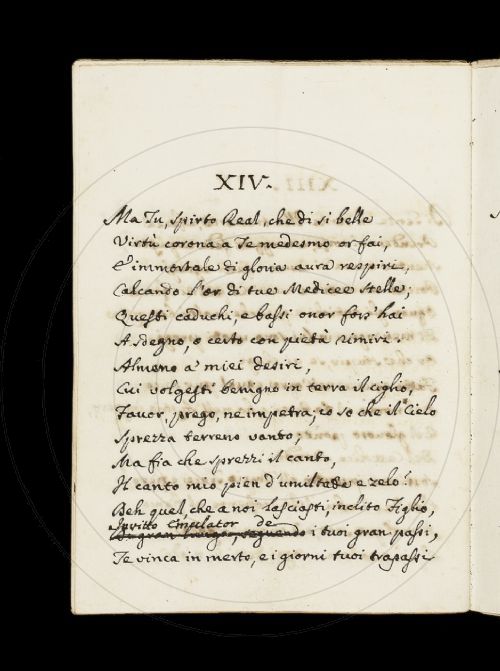 XIV.
Ma Tu, Spirto Real, che di si belle
Virtù corona a Te medesmo or fai,
E immortale di gloria aura respiri,
Calcando l'or di tue Medicee Stelle;
Questi caduchi, e bassi onor fors' hai
A sdegno, o certo con pietà rimiri.
Almeno a' miei desiri,
Cui volgesti benigno in terra il ciglio,
Favor, prego, ne impetra; io so che il Cielo
Sprezza terreno vanto;
Ma fia che sprezzi il canto,
Il canto mio pien d'umiltade e zelo?
Deh quel, che a noi lasciasti, inclito Figlio,
Invitto Emulator de
seguendo i tuoi gran passi,
Te vinca in merto, e i giorni tuoi trapassi